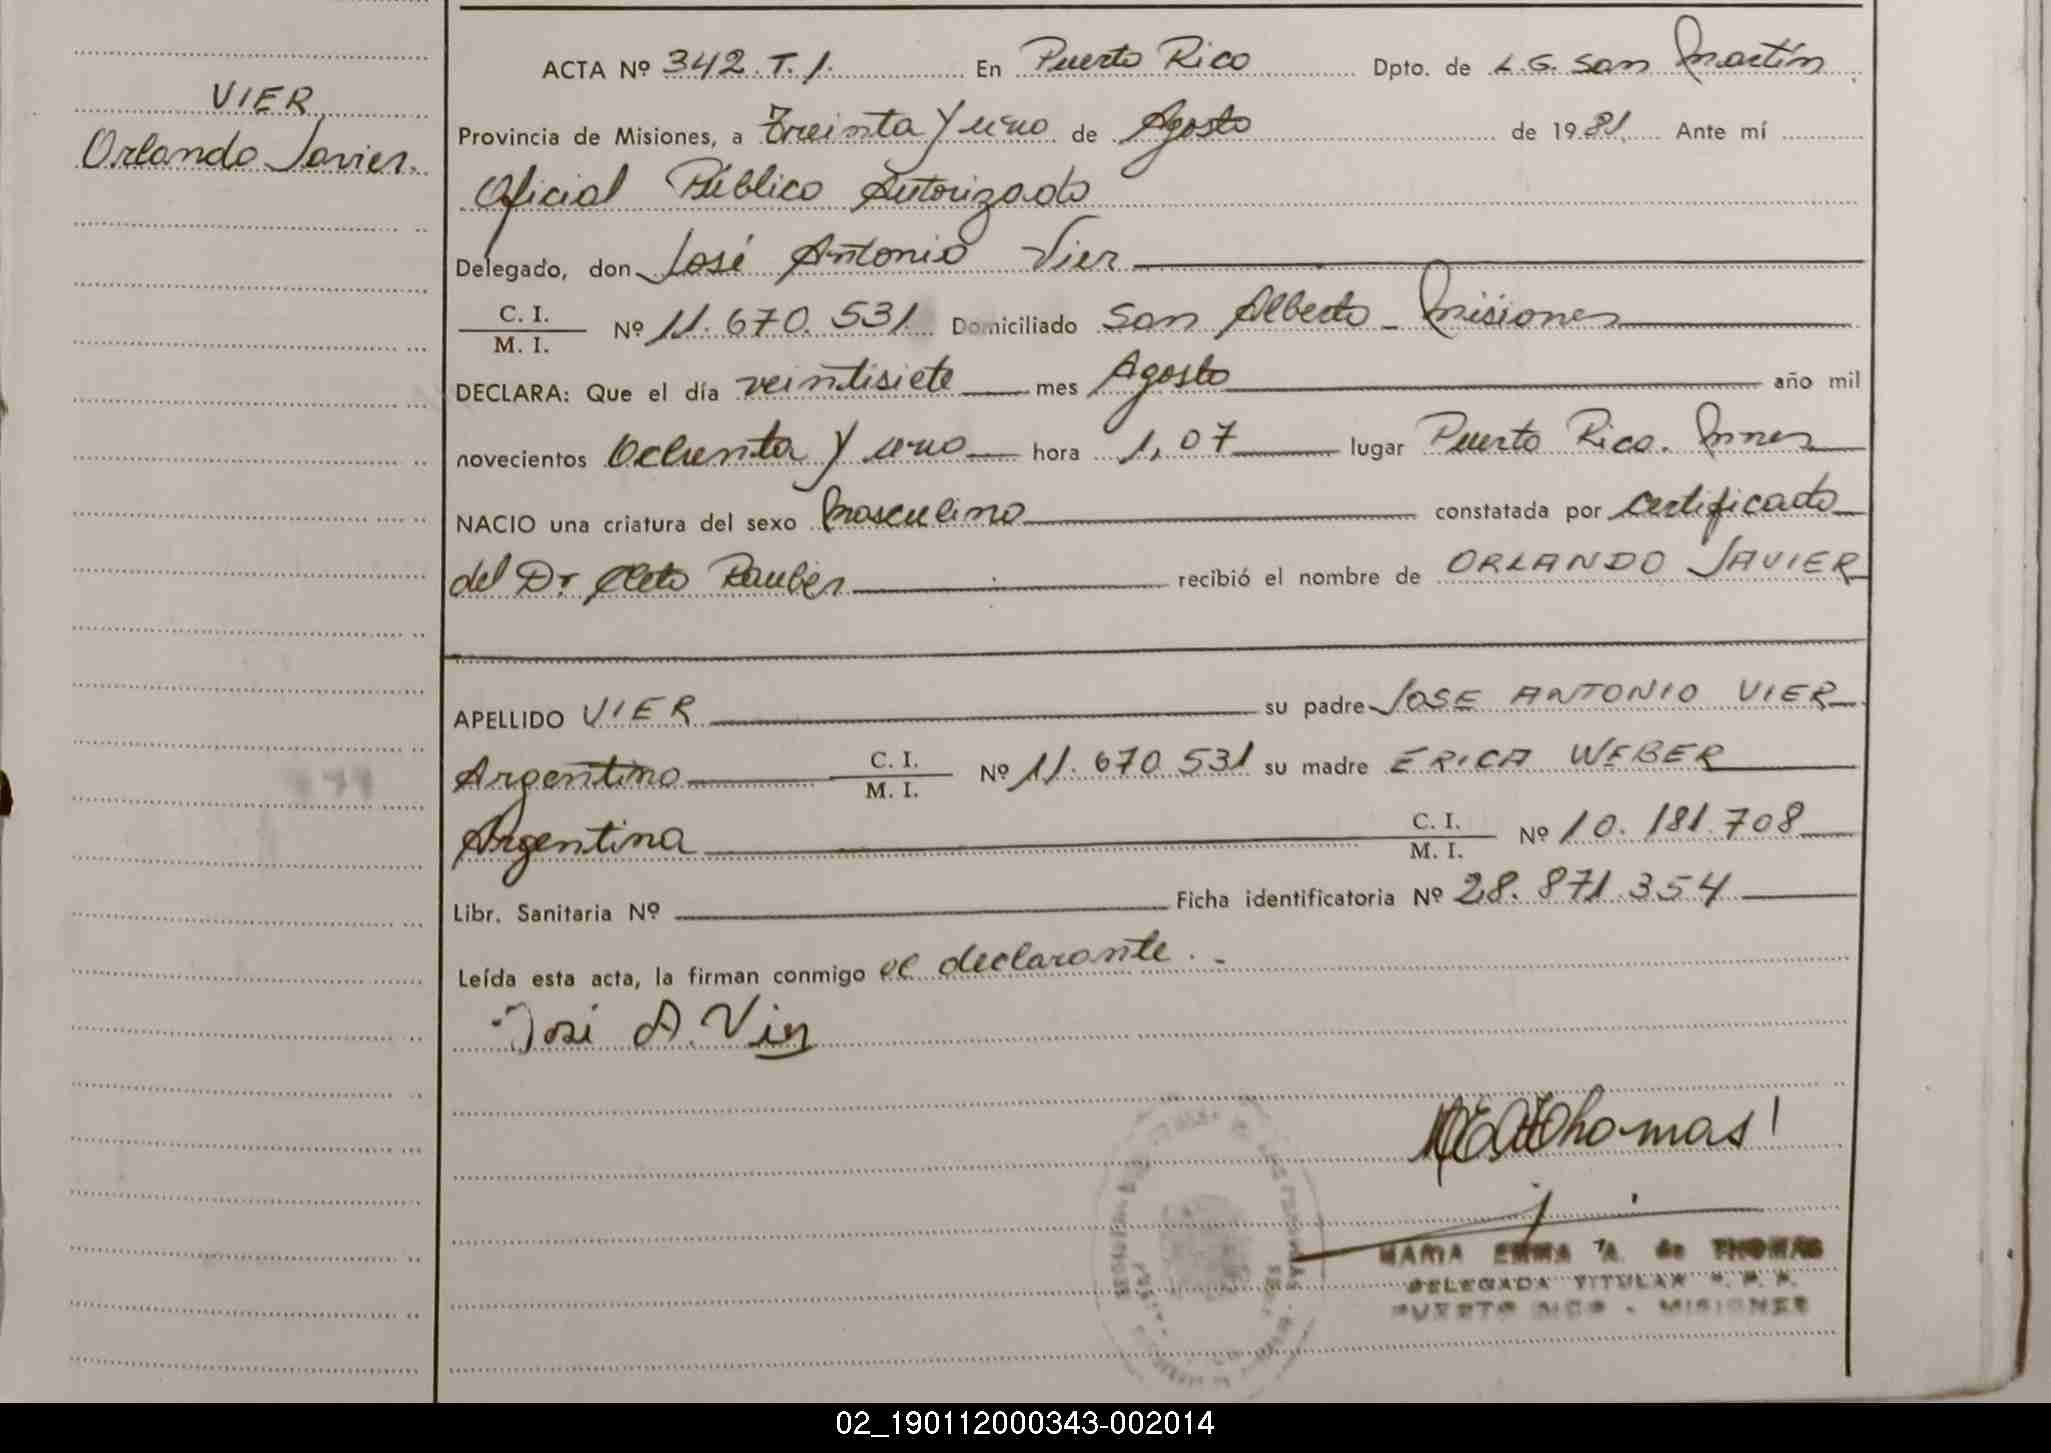 VIER
Orlando Javier.
ACTA Nº 342.T.1. En Puerto Rico Dpto. de L.G. San Martín
Provincia de Misiones, a Treinta y uno de Agosto de 1981. Ante mí
Oficial Público Autorizado
Delegado, don José Antonio Vier
C. I.
M. I. Nº 11.670.531 Domiciliado San Alberto - Misiones
DECLARA: Que el día veintisiete mes Agosto año mil
novecientos Ochenta y uno hora 1,07 lugar Puerto Rico. Mnes
NACIO una criatura del sexo Masculino constatada por certificado
del Dr. Cleto Rauber recibió el nombre de ORLANDO JAVIER
APELLIDO VIER su padre JOSE ANTONIO VIER
Argentino C. I. M. I. Nº 11.670.531 su madre ERICA WEBER
Argentina C. I. M. I. Nº 10.181.708
Libr. Sanitaria Nº Ficha identificatoria Nº 28.871.354
Leída esta acta, la firman conmigo el declarante. -
José A. Vier
MEAThomas
MARIA EMMA A. de THOMAS
DELEGADA TITULAR R. P. P.
PUERTO RICO - MISIONES
02_190112000343-002014